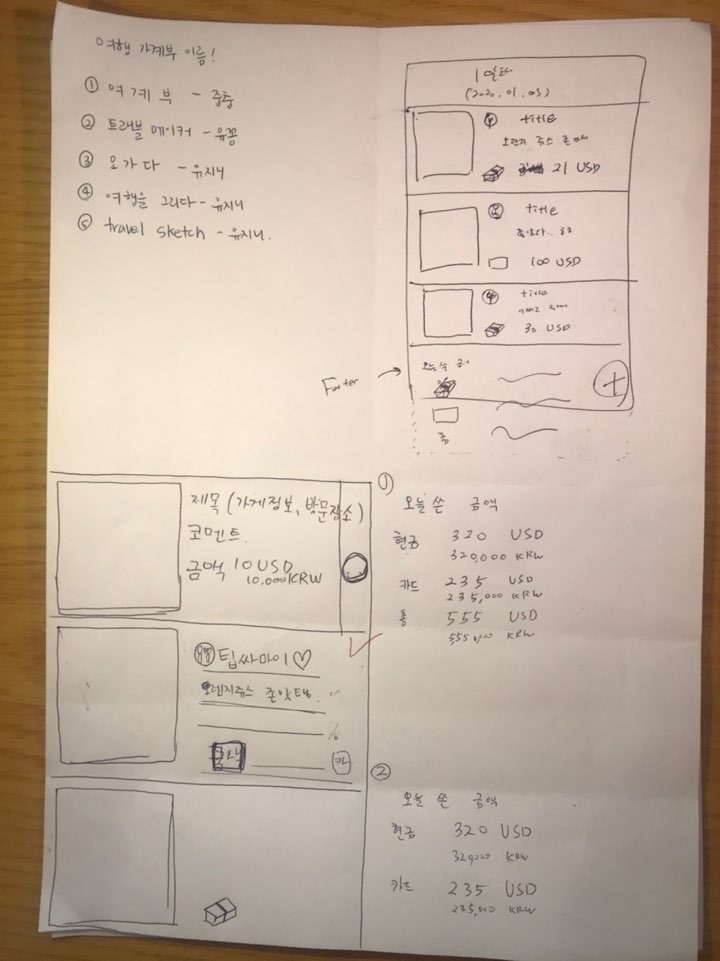 여행 가계부 이름!
① 여계부 - 중충
② 트래블 메이커 - 유꽁
③ 오가다 - 유지니
④ 여행을 그리다 - 유지니
⑤ travel sketch - 유지니.
1일차
(2020.01.03)
title
오렌지 쥬스 존맛
21 USD
title
100 USD
title
30 USD
오늘 쓴
Footer
총
+
제목 (가게정보, 방문장소)
코멘트.
금액 10 USD
10,000 KRW
팁싸마이♡
오렌지쥬스 존맛탱
카
①
오늘 쓴 금액
현금 320 USD
320,000 KRW
카드 235 USD
235,000 KRW
총 555 USD
555,000 KRW
②
오늘 쓴 금액
현금 320 USD
320,000 KRW
카드 235 USD
235,000 KRW